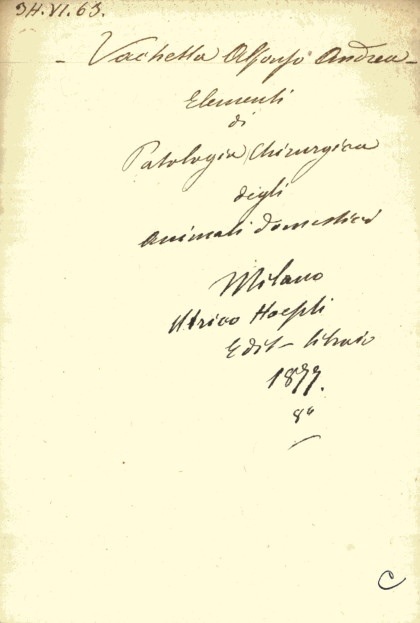 34.VI.63.
- Vachetta Alfonso Andrea -
Elementi
di
Patologia Chirurgica
degli
Animali domestici
Milano
Ulrico Hoepli
Edit - libraio
1877.
8°
C